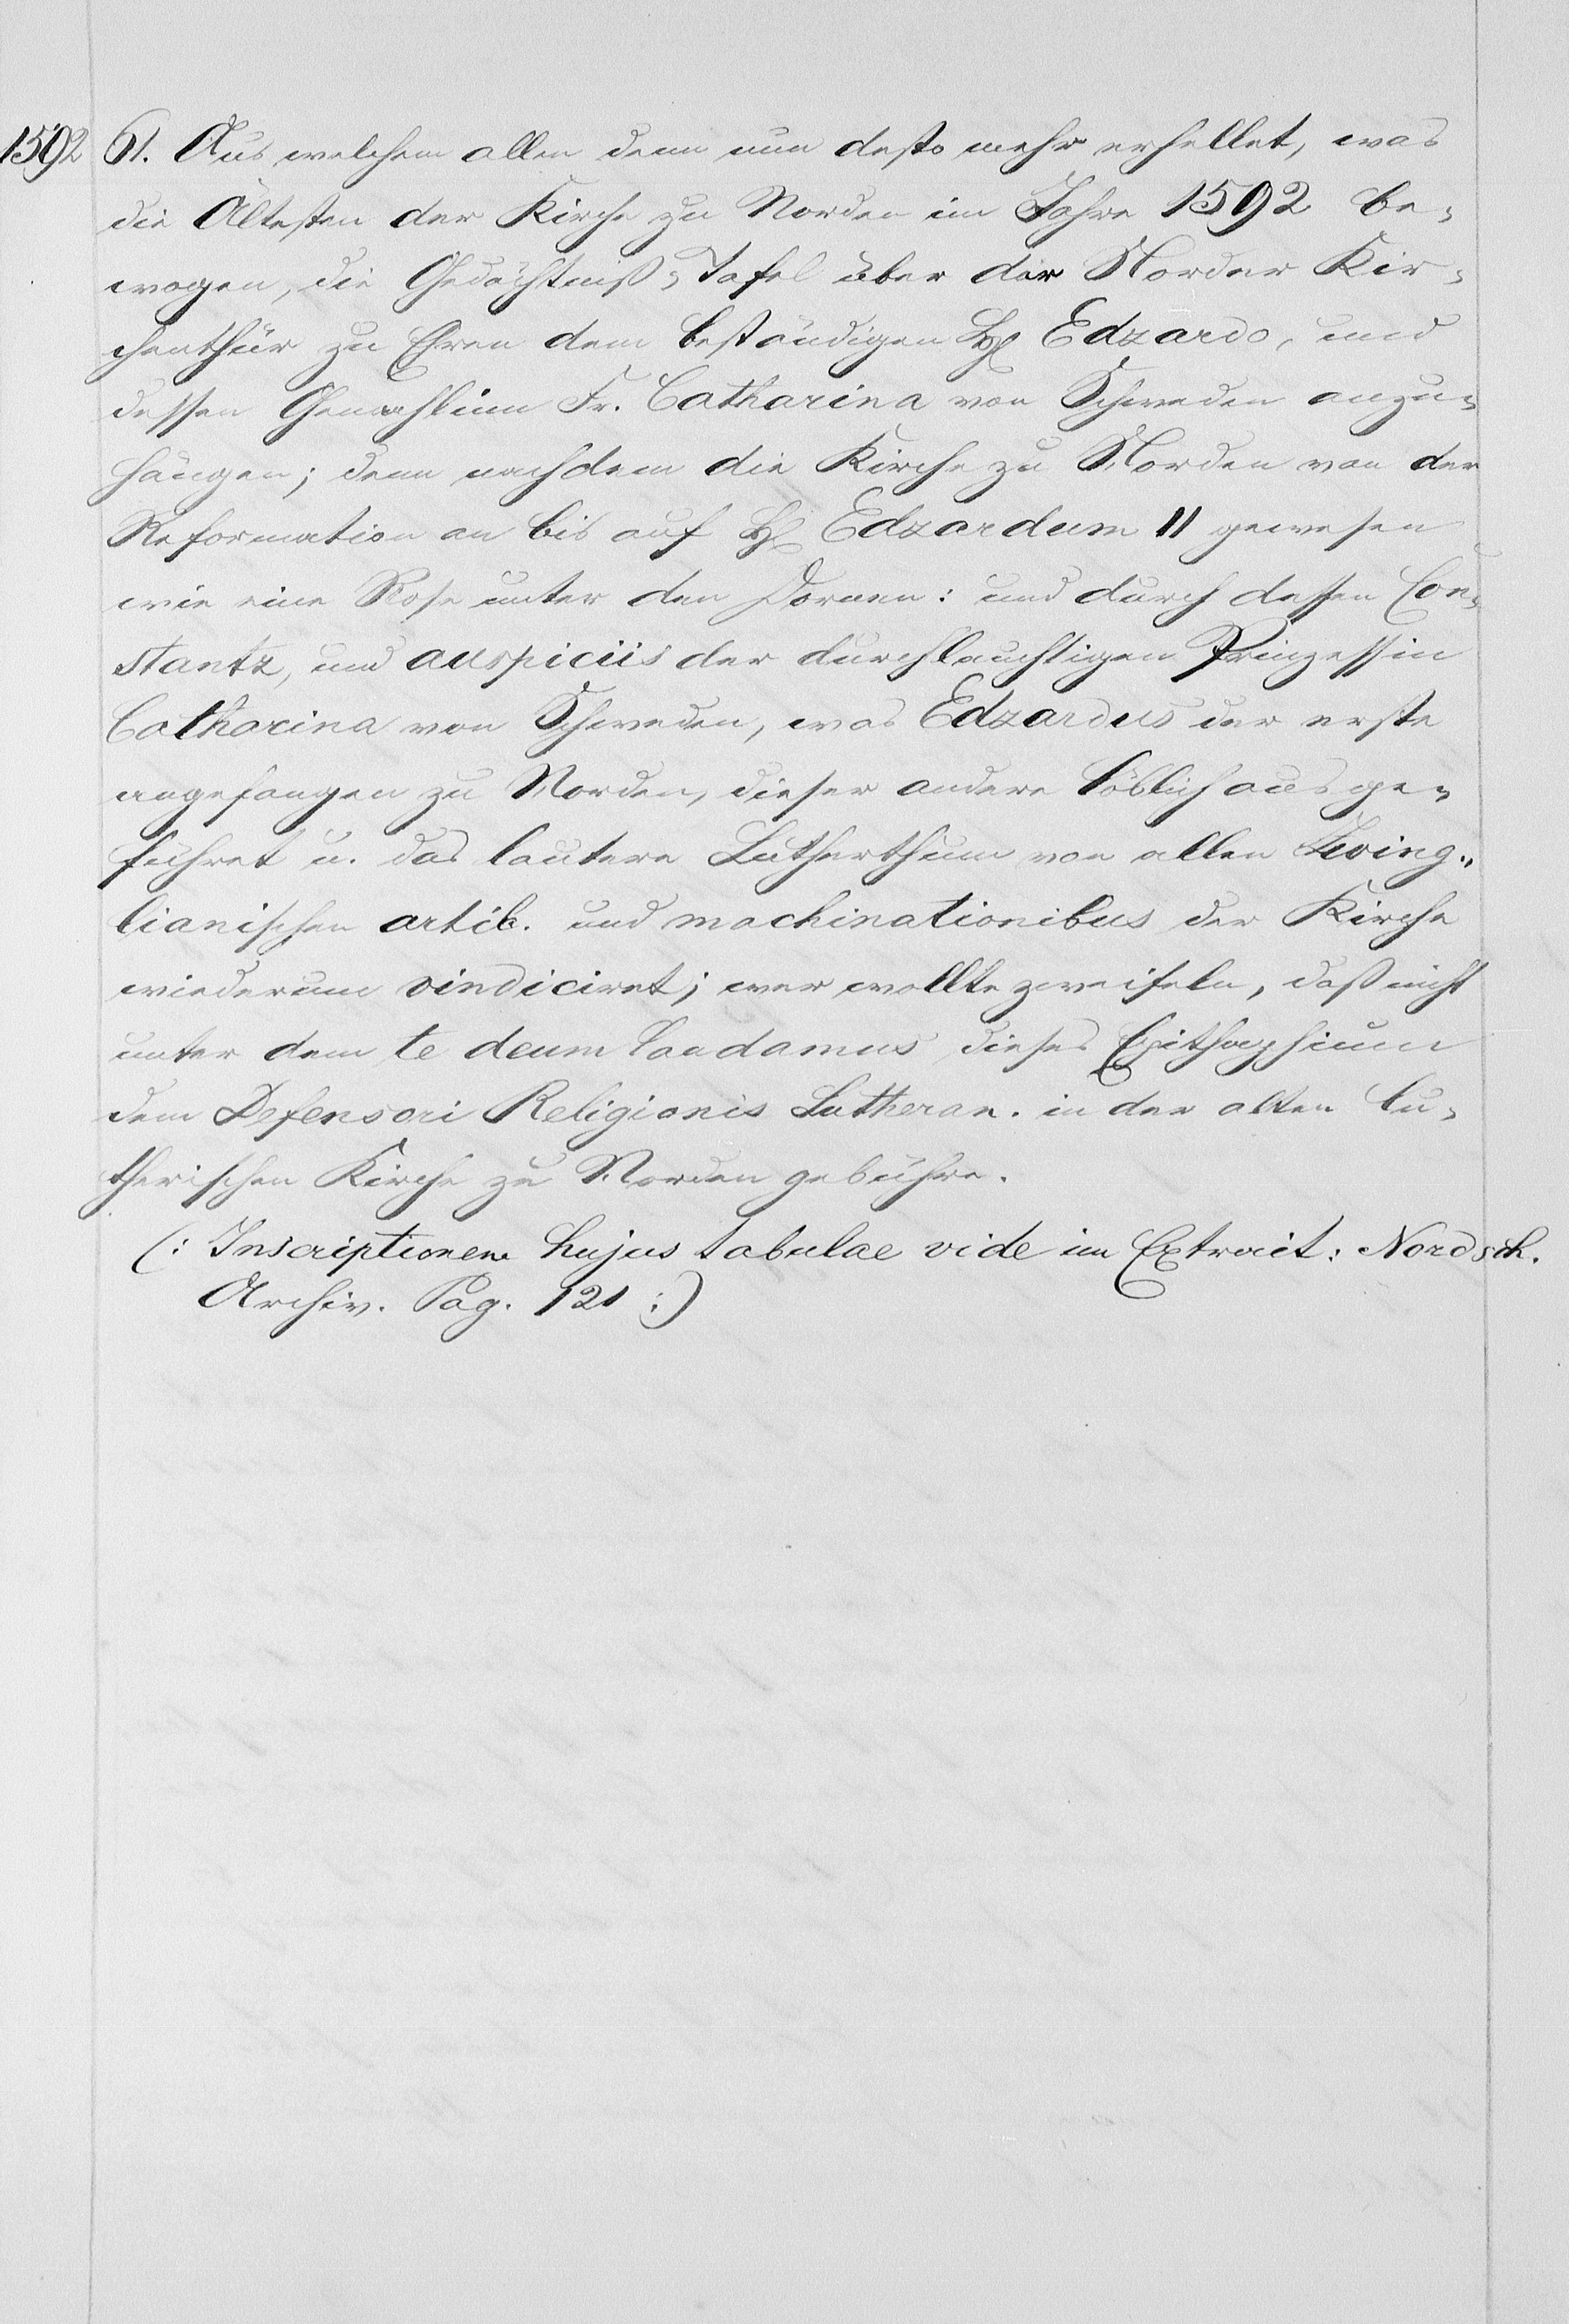 1592 61. Aus welchem allen denn nun desto mehr erhellet, was
die Ältesten der Kirche zu Norden im Jahre 1592 be-
wogen, die Gedächtniß-Tafel über der Norder Kir-
chenthür zu Ehren dem beständigen H. Edzardo, und
dessen Gemahlinn Fr. Catharina von Schweden anzu-
hängen; denn nachdem die Kirche zu Norden von der
Reformation an bis auf H. Edzardum II gewesen
wie eine Rose unter den Dornen: und durch dessen Con-
stantz, und auspiciis der durchlauchtigen Prinzessin
Catharina von Schweden, was Edzardus der erste
angefangen zu Norden, dieser andere löblich ausge-
führet u. das lautere Lutherthum von allen Zwing-
lianischen artib. und machinationibus der Kirche
wiederum vindiciret; wer wollte zweifeln, daß nicht
unter dem te deum laudamus dieses Epithaphium
dem Defensori Religionis Lutheran. in der alten lu-
therischen Kirche zu Norden gebühre.
(: Inscriptionem hujus tabulae vide im Extrait: Nordsch.
Archiv. Pag. 121 :)